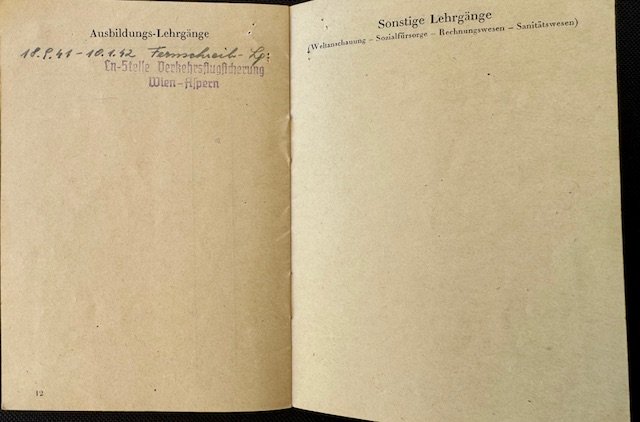 Ausbildungs-Lehrgänge
18.9.41 - 10.1.42 Fernschreib-Lg:
Ln-Stelle Verkehrsflugsicherung
Wien-Aspern
12
Sonstige Lehrgänge
(Weltanschauung – Sozialfürsorge – Rechnungswesen – Sanitätswesen)